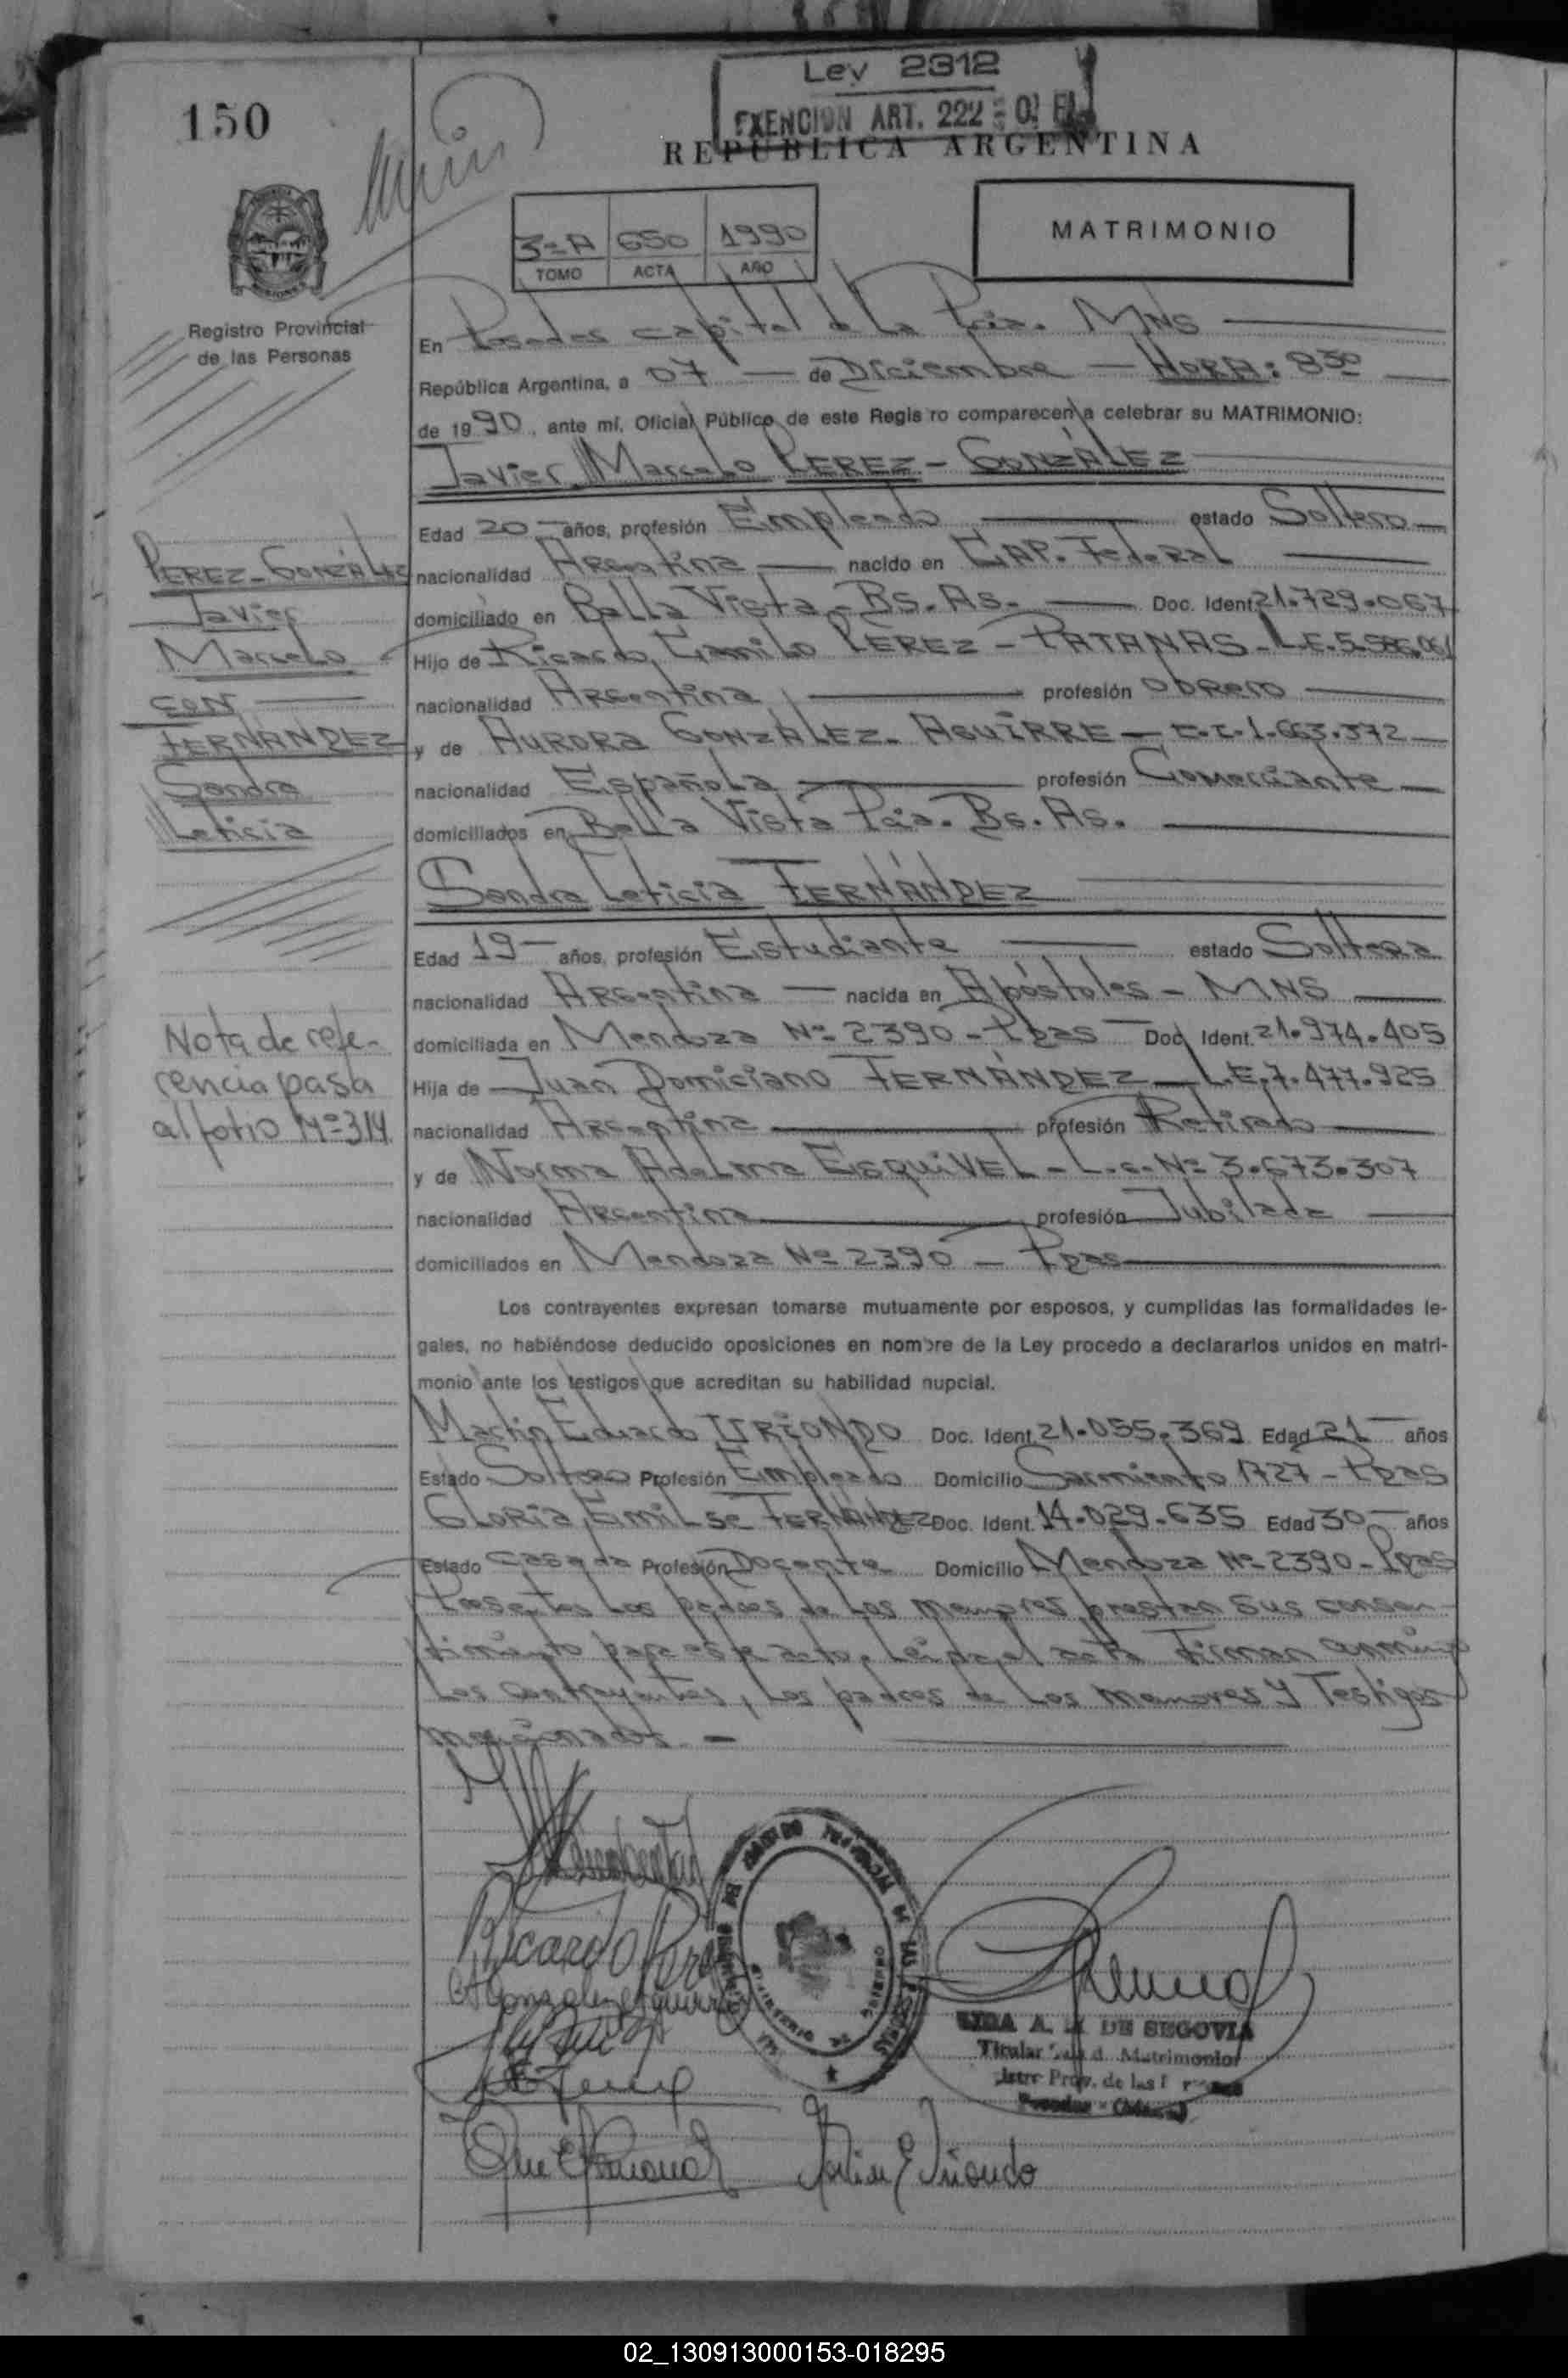 Ley 2312
EXENCION ART. 222
150
REPUBLICA ARGENTINA
3º A 650 1990
TOMO ACTA AÑO
MATRIMONIO
Registro Provincial
de las Personas
En Posadas capital de la Pcia. MNS
República Argentina, a 07 de Diciembre - HORA: 8 30
de 1990, ante mí, Oficial Público de este Regis ro comparecen a celebrar su MATRIMONIO:
Javier Marcelo PEREZ - GONZÁLEZ
Edad 20 años, profesión Empleado estado Soltero
nacionalidad Argentina nacido en CAP. Federal
domiciliado en Bella Vista - Bs. As. Doc. Ident. 21.729.067
Hijo de Ricardo Camilo PEREZ - PATANAS - L.E. 5.586.061
nacionalidad Argentina profesión obrero
y de AURORA GONZÁLEZ - AGUIRRE - C.I. 1.663.372
nacionalidad Española profesión Comerciante
domiciliados en Bella Vista Pcia. Bs. As.
Sandra Leticia FERNÁNDEZ
Edad 19 años, profesión Estudiante estado Soltera
nacionalidad Argentina nacida en Apóstoles - MNS
domiciliada en Mendoza Nº 2390 - Pdas Doc. Ident. 21.974.405
Hija de Juan Domiciano FERNÁNDEZ - L.E. 7.477.925
nacionalidad Argentina profesión Retirado
y de Norma Adelma ESQUIVEL - L.C. Nº 3.673.307
nacionalidad Argentina profesión Jubilada
domiciliados en Mendoza Nº 2390 - Pdas
PEREZ - GONZÁLEZ
Javier
Marcelo
CON
FERNÁNDEZ
Sandra
Leticia
Nota de refe-
rencia pasa
al folio Nº 314
Los contrayentes expresan tomarse mutuamente por esposos, y cumplidas las formalidades le-
gales, no habiéndose deducido oposiciones en nombre de la Ley procedo a declararlos unidos en matri-
monio ante los testigos que acreditan su habilidad nupcial.
Martin Eduardo IRIONDO Doc. Ident. 21.055.369 Edad 21 años
Estado Soltero Profesión Empleado Domicilio Sarmiento 1727 - Pdas
GLORIA EMILSE FERNÁNDEZ Doc. Ident. 14.029.635 Edad 30 años
Estado Casada Profesión Docente Domicilio Mendoza Nº 2390 - Pdas
Presentes los padres de los menores prestan sus consen-
timiento para este acto. Leída el acta firman conmigo
los contrayentes, los padres de los menores y Testigos
mencionados. -
Ricardo Perez
A Gonzalez Aguirre
LIDA A. DE SEGOVIA
Titular Matrimonios
Prov. de las
Posadas
Martin E Iriondo
02_130913000153-018295